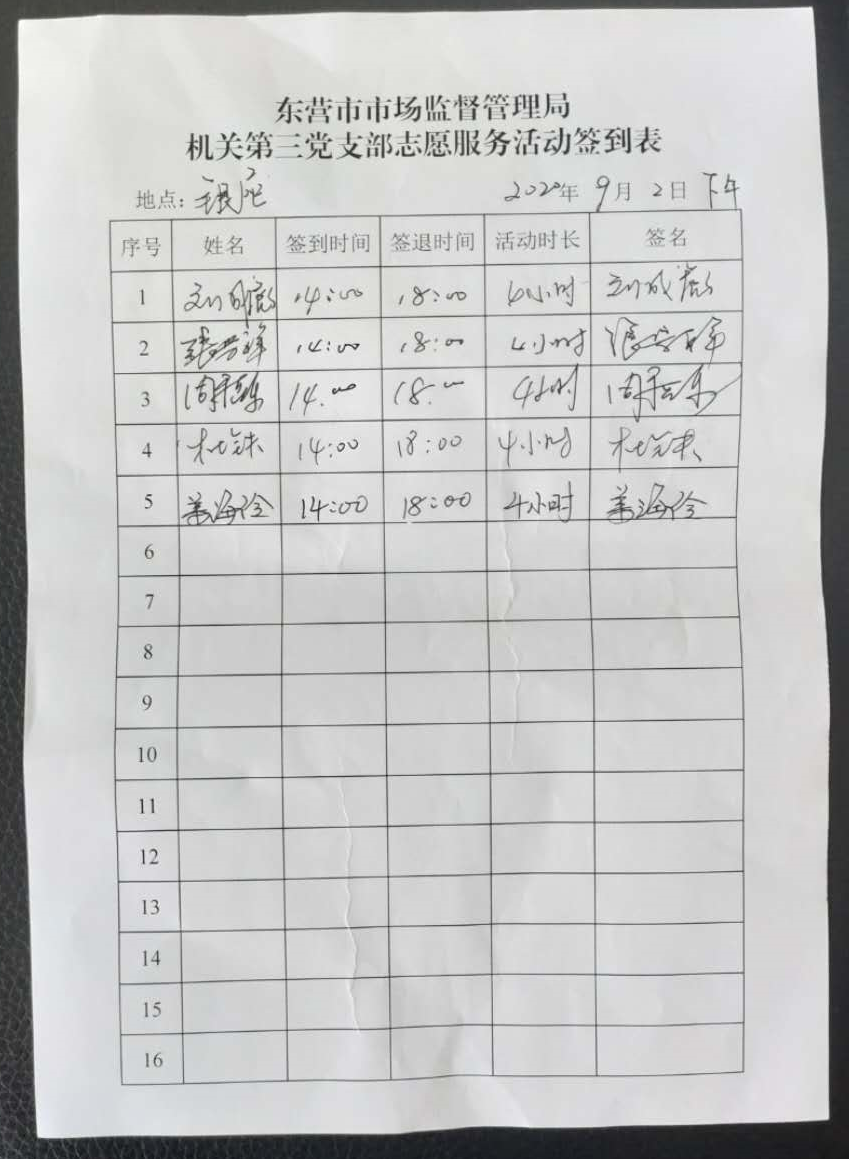 东营市市场监督管理局
机关第三党支部志愿服务活动签到表
地点: 银座 2020年 9月 2日 下午
序号 姓名 签到时间 签退时间 活动时长 签名
1 14:00 18:00 4小时
2 14:00 18:00 4小时
3 14:00 18:00 4小时
4 14:00 18:00 4小时
5 14:00 18:00 4小时
6
7
8
9
10
11
12
13
14
15
16